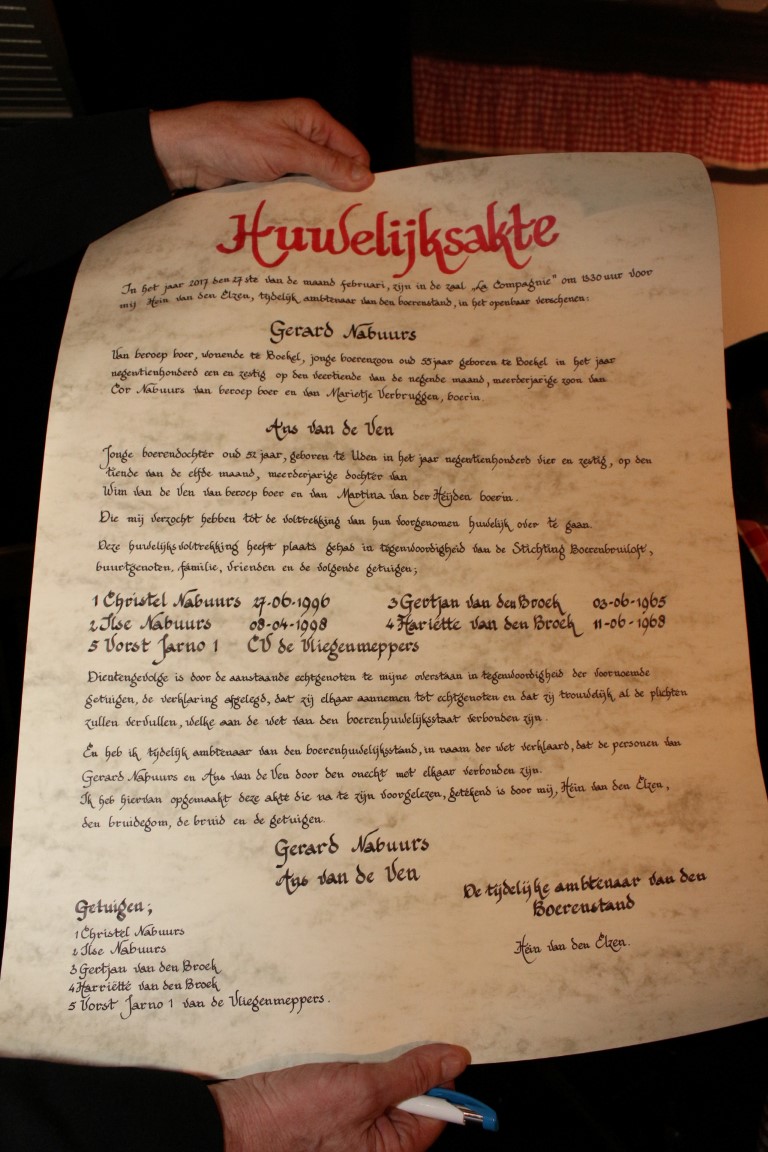 Huwelijksakte
In het jaar 2017 den 27 ste van de maand februari, zijn in de zaal „La Compagnie" om 15.30 uur voor
mij Hein van den Elzen, tijdelijk ambtenaar van den boerenstand, in het openbaar verschenen:
Gerard Nabuurs
Van beroep boer, wonende te Boekel, jonge boerenzoon oud 55 jaar geboren te Boekel in het jaar
negentienhonderd een en zestig op den veertiende van de negende maand, meerderjarige zoon van
Cor Nabuurs van beroep boer en van Marietje Verbruggen, boerin.
Ans van de Ven
Jonge boerendochter oud 52 jaar, geboren te Uden in het jaar negentienhonderd vier en zestig, op den
tiende van de elfde maand, meerderjarige dochter van
Wim van de Ven van beroep boer en van Martina van der Heijden boerin.
Die mij verzocht hebben tot de voltrekking van hun voorgenomen huwelijk over te gaan.
Deze huwelijksvoltrekking heeft plaats gehad in tegenwoordigheid van de Stichting Boerenbruiloft,
buurtgenoten, familie, vrienden en de volgende getuigen;
1 Christel Nabuurs 27-06-1996 3 Gertjan van den Broek 03-06-1965
2 Ilse Nabuurs 08-04-1998 4 Hariëtte van den Broek 11-06-1968
5 Vorst Jarno 1 CV de Vliegenmeppers
Dientengevolge is door de aanstaande echtgenoten te mijne overstaan in tegenwoordigheid der voornoemde
getuigen, de verklaring afgelegd, dat zij elkaar aannemen tot echtgenoten en dat zij trouwelijk al de plichten
zullen vervullen, welke aan de wet van den boerenhuwelijksstaat verbonden zijn.
En heb ik tijdelijk ambtenaar van den boerenhuwelijksstand, in naam der wet verklaard, dat de personen van
Gerard Nabuurs en Ans van de Ven door den onecht met elkaar verbonden zijn.
Ik heb hiervan opgemaakt deze akte die na te zijn voorgelezen, getekend is door mij, Hein van den Elzen,
den bruidegom, de bruid en de getuigen.
Gerard Nabuurs
Ans van de Ven
De tijdelijke ambtenaar van den
Boerenstand
Hein van den Elzen.
Getuigen;
1 Christel Nabuurs
2 Ilse Nabuurs
3 Gertjan van den Broek
4 Harriëtte van den Broek
5 Vorst Jarno 1 van de Vliegenmeppers.